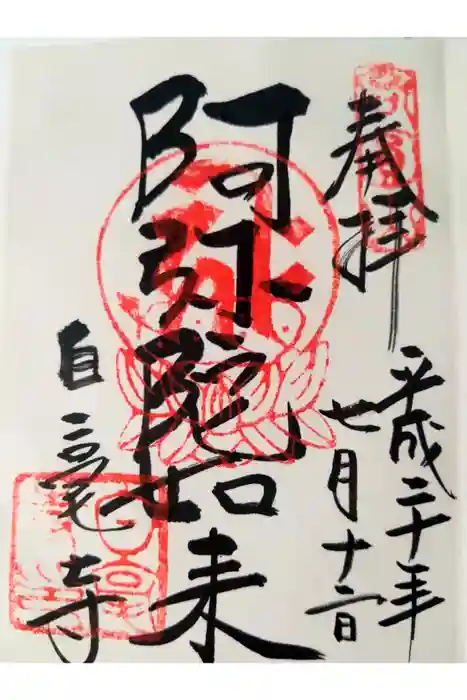 奉拝
平成二十年
七月十二日
阿弥陀如来
白毫寺